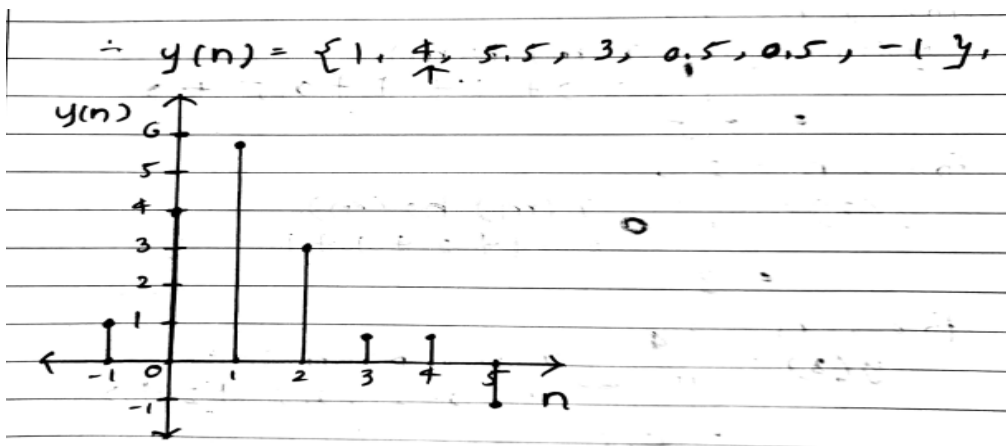 ∴ y(n) = {1, 4, 5.5, 3, 0.5, 0.5, -1},
↑
y(n)
6
5
4
3
2
1
-1 0 1 2 3 4 5
n
-1